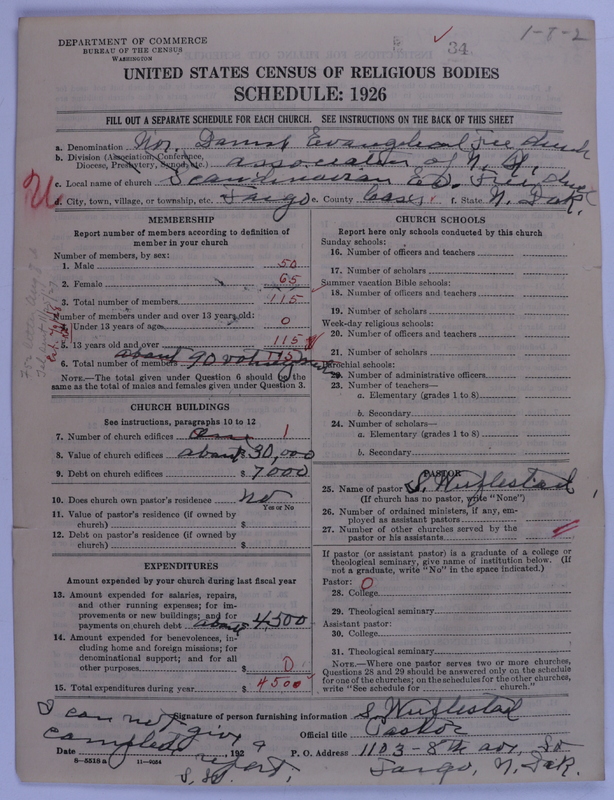 1-8-2
34
DEPARTMENT OF COMMERCE
BUREAU OF THE CENSUS
WASHINGTON
UNITED STATES CENSUS OF RELIGIOUS BODIES
SCHEDULE: 1926
FILL OUT A SEPARATE SCHEDULE FOR EACH CHURCH. SEE INSTRUCTIONS ON THE BACK OF THIS SHEET
a. Denomination Nor. Danish Evangelical Free Church
b. Division (Association, Conference, Diocese, Presbytery, Synod, etc.) association of N. A.
c. Local name of church Scandinavian Ev. Free Church
d. City, town, village, or township, etc. Fargo e. County Cass f. State N. Dak.
MEMBERSHIP
Report number of members according to definition of
member in your church
Number of members, by sex:
1. Male 50
2. Female 65
3. Total number of members 115
Number of members under and over 13 years old:
4. Under 13 years of age 0
5. 13 years old and over 115
6. Total number of members 115
about 90 voting
NOTE.—The total given under Question 6 should be the
same as the total of males and females given under Question 3.
CHURCH BUILDINGS
See instructions, paragraphs 10 to 12
7. Number of church edifices One 1
8. Value of church edifices about $ 30,000
9. Debt on church edifices $ 7000
10. Does church own pastor's residence No
Yes or No
11. Value of pastor's residence (if owned by
church) $
12. Debt on pastor's residence (if owned by
church) $
EXPENDITURES
Amount expended by your church during last fiscal year
13. Amount expended for salaries, repairs,
and other running expenses; for im-
provements or new buildings; and for
payments on church debt about 4,500
14. Amount expended for benevolences, in-
cluding home and foreign missions; for
denominational support; and for all
other purposes $ 0
15. Total expenditures during year $ 4500
CHURCH SCHOOLS
Report here only schools conducted by this church
Sunday schools:
16. Number of officers and teachers
17. Number of scholars
Summer vacation Bible schools:
18. Number of officers and teachers
19. Number of scholars
Week-day religious schools:
20. Number of officers and teachers
21. Number of scholars
Parochial schools:
22. Number of administrative officers
23. Number of teachers—
a. Elementary (grades 1 to 8)
b. Secondary
24. Number of scholars—
a. Elementary (grades 1 to 8)
b. Secondary
PASTOR
25. Name of pastor S.
(If church has no pastor, write "None")
26. Number of ordained ministers, if any, em-
ployed as assistant pastors
27. Number of other churches served by the
pastor or his assistants
If pastor (or assistant pastor) is a graduate of a college or
theological seminary, give name of institution below. (If
not a graduate, write "No" in the space indicated.)
Pastor: 0
28. College
29. Theological seminary
Assistant pastor:
30. College
31. Theological seminary
NOTE.—Where one pastor serves two or more churches,
Questions 28 and 29 should be answered only on the schedule
for one of the churches; on the schedules for the other churches,
write "See schedule for church."
Signature of person furnishing information S.
Official title Pastor
Date , 192 P. O. Address 1103 - 8th av. So
Fargo, N. Dak.
I can not give a
complete report.
8—5518 a 11—6064